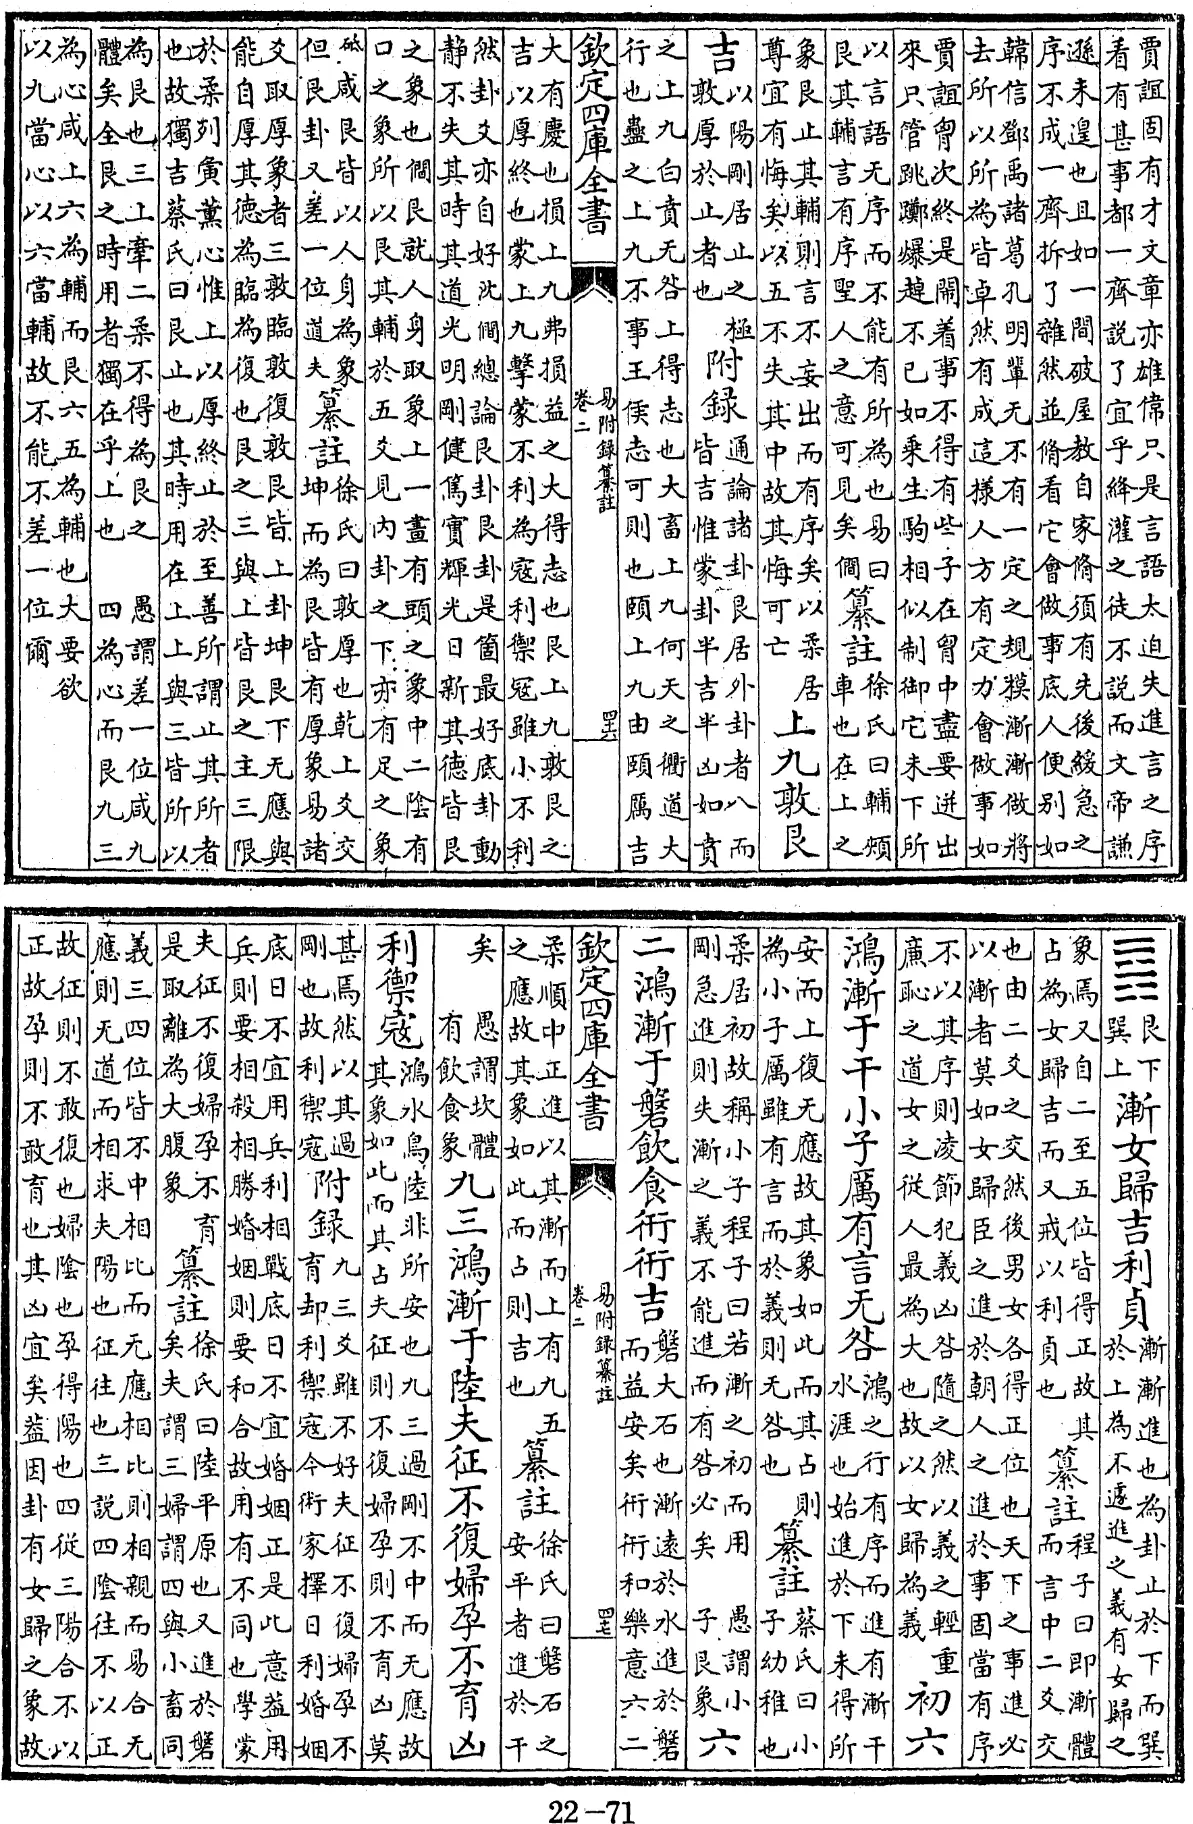 賈誼固有才文章亦雄偉只是言語太迫失進言之序
看有甚事都一齊説了宜乎絳灌之徒不説而文帝謙
遜未遑也且如一間破屋教自家脩須有先後緩急之
序不成一齊拆了雜然並脩看它會做事底人便别如
韓信鄧禹諸葛孔明輩无不有一定之規模漸漸做將
去所以所為皆卓然有成這様人方有定力會做事如
賈誼胷次終是閙着事不得有些子在胷中盡要迸出
來只管跳躑爆趠不已如乘生駒相似制御它未下所
以言語无序而不能有所為也易曰艮其輔言有序聖人之意可見矣僩 纂註 徐氏曰輔頰車也在上之
象艮止其輔則言不妄出而有序矣以柔居尊宜有悔矣以五不失其中故其悔可亡 上九敦艮
吉 以陽剛居止之極敦厚於止者也 附録 通論諸卦艮居外卦者八而皆吉惟蒙卦半吉半凶如賁
之上九白賁无咎上得志也大畜上九何天之衢道大
行也蠱之上九不事王侯志可則也頤上九由頤厲吉
欽定四庫全書 易附録纂註 卷二 四六
大有慶也損上九弗損益之大得志也艮上九敦艮之
吉以厚終也蒙上九擊蒙不利為寇利禦冦雖小不利
然卦爻亦自好沈僩總論艮卦艮卦是箇最好底卦動
静不失其時其道光明剛健篤實輝光日新其德皆艮
之象也僩艮就人身取象上一畫有頭之象中二陰有
口之象所以艮其輔於五爻見内卦之下亦有足之象
砥咸艮皆以人身為象但艮卦又差一位道夫 纂註 徐氏曰敦厚也乾上爻交坤而為艮皆有厚象易諸
爻取厚象者三敦臨敦復敦艮皆上卦坤艮下无應與
能自厚其德為臨為復也艮之三與上皆艮之主三限
於柔列夤薰心惟上以厚終止於至善所謂止其所者
也故獨吉蔡氏曰艮止也其時用在上上與三皆所以
為艮也三上牽二柔不得為艮之體矣全艮之時用者獨在乎上也 愚謂差一位咸九四為心而艮九三
為心咸上六為輔而艮六五為輔也大要欲
以九當心以六當輔故不能不差一位爾
䷴ 艮下巽上 漸女歸吉利貞 漸漸進也為卦止於下而巽於上為不遽進之義有女歸之
象焉又自二至五位皆得正故其占為女歸吉而又戒以利貞也 纂註 程子曰即漸體而言中二爻交
也由二爻之交然後男女各得正位也天下之事進必
以漸者莫如女歸臣之進於朝人之進於事固當有序
不以其序則凌節犯義凶咎隨之然以義之輕重廉恥之道女之從人最為大也故以女歸為義 初六
鴻漸于干小子厲有言无咎 鴻之行有序而進有漸干水涯也始進於下未得所
安而上復无應故其象如此而其占則為小子厲雖有言而於義則无咎也 纂註 蔡氏曰小子幼稚也
柔居初故稱小子程子曰若漸之初而用剛急進則失漸之義不能進而有咎必矣 愚謂小子艮象 六
二鴻漸于磐飲食衎衎吉 磐大石也漸遠於水進於磐而益安矣衎衎和樂意六二
欽定四庫全書 易附録纂註 卷二 四七
柔順中正進以其漸而上有九五之應故其象如此而占則吉也 纂註 徐氏曰磐石之安平者進於干
矣 愚謂坎體有飲食象 九三鴻漸于陸夫征不復婦孕不育凶
利禦寇 鴻水鳥陸非所安也九三過剛不中而无應故其象如此而其占夫征則不復婦孕則不育凶莫
甚焉然以其過剛也故利禦寇 附録 九三爻雖不好夫征不復婦孕不育却利禦寇今術家擇日利婚姻
底日不宜用兵利相戰底日不宜婚姻正是此意益用
兵則要相殺相勝婚姻則要和合故用有不同也學蒙
夫征不復婦孕不育是取離為大腹象 纂註 徐氏曰陸平原也又進於磐矣夫謂三婦謂四與小畜同
義三四位皆不中相比而无應相比則相親而易合无
應則无道而相求夫陽也征往也三説四隂往不以正
故征則不敢復也婦陰也孕得陽也四從三陽合不以
正故孕則不敢育也其凶宜矣葢因卦有女歸之象故
22-71